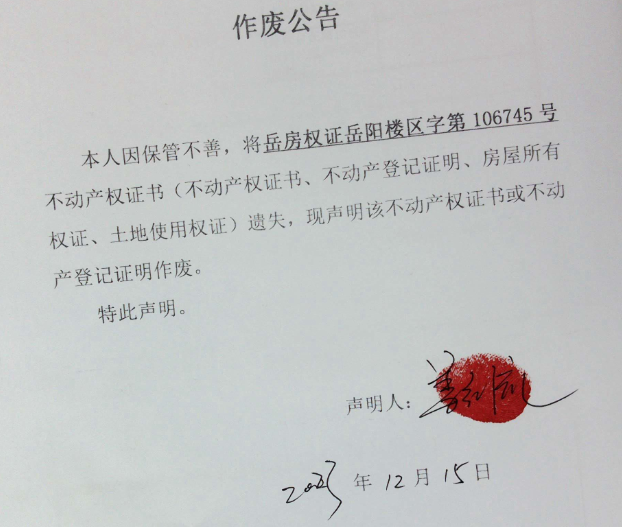 作废公告
本人因保管不善，将岳房权证岳阳楼区字第 106745 号
不动产权证书（不动产权证书、不动产登记证明、房屋所有
权证、土地使用权证）遗失，现声明该不动产权证书或不动
产登记证明作废。
特此声明。
声明人：
2023 年 12 月 15 日